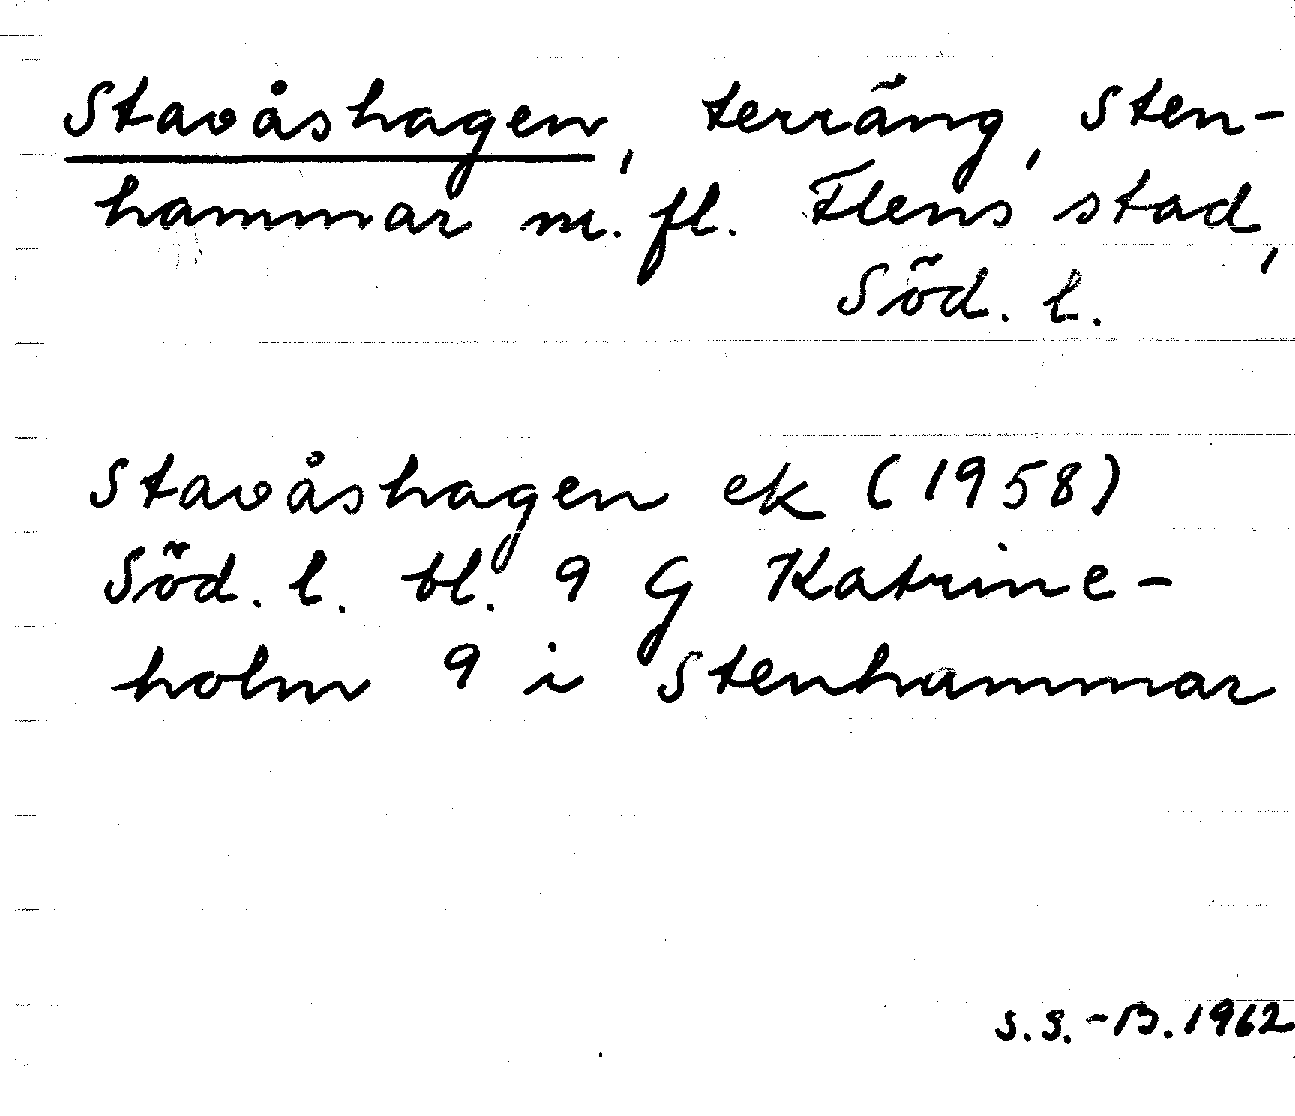 Stavåshagen, terräng, Sten-
hammar m. fl. Flens stad,
Söd. l.
Stavåshagen ek (1958)
Söd. l. bl. 9 G Katrine-
holm 9 i Stenhammar
S. S.-B. 1962